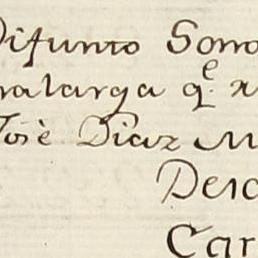 Difunto Sono
nalarga q.e x
Josè Diaz M
Desc
Car